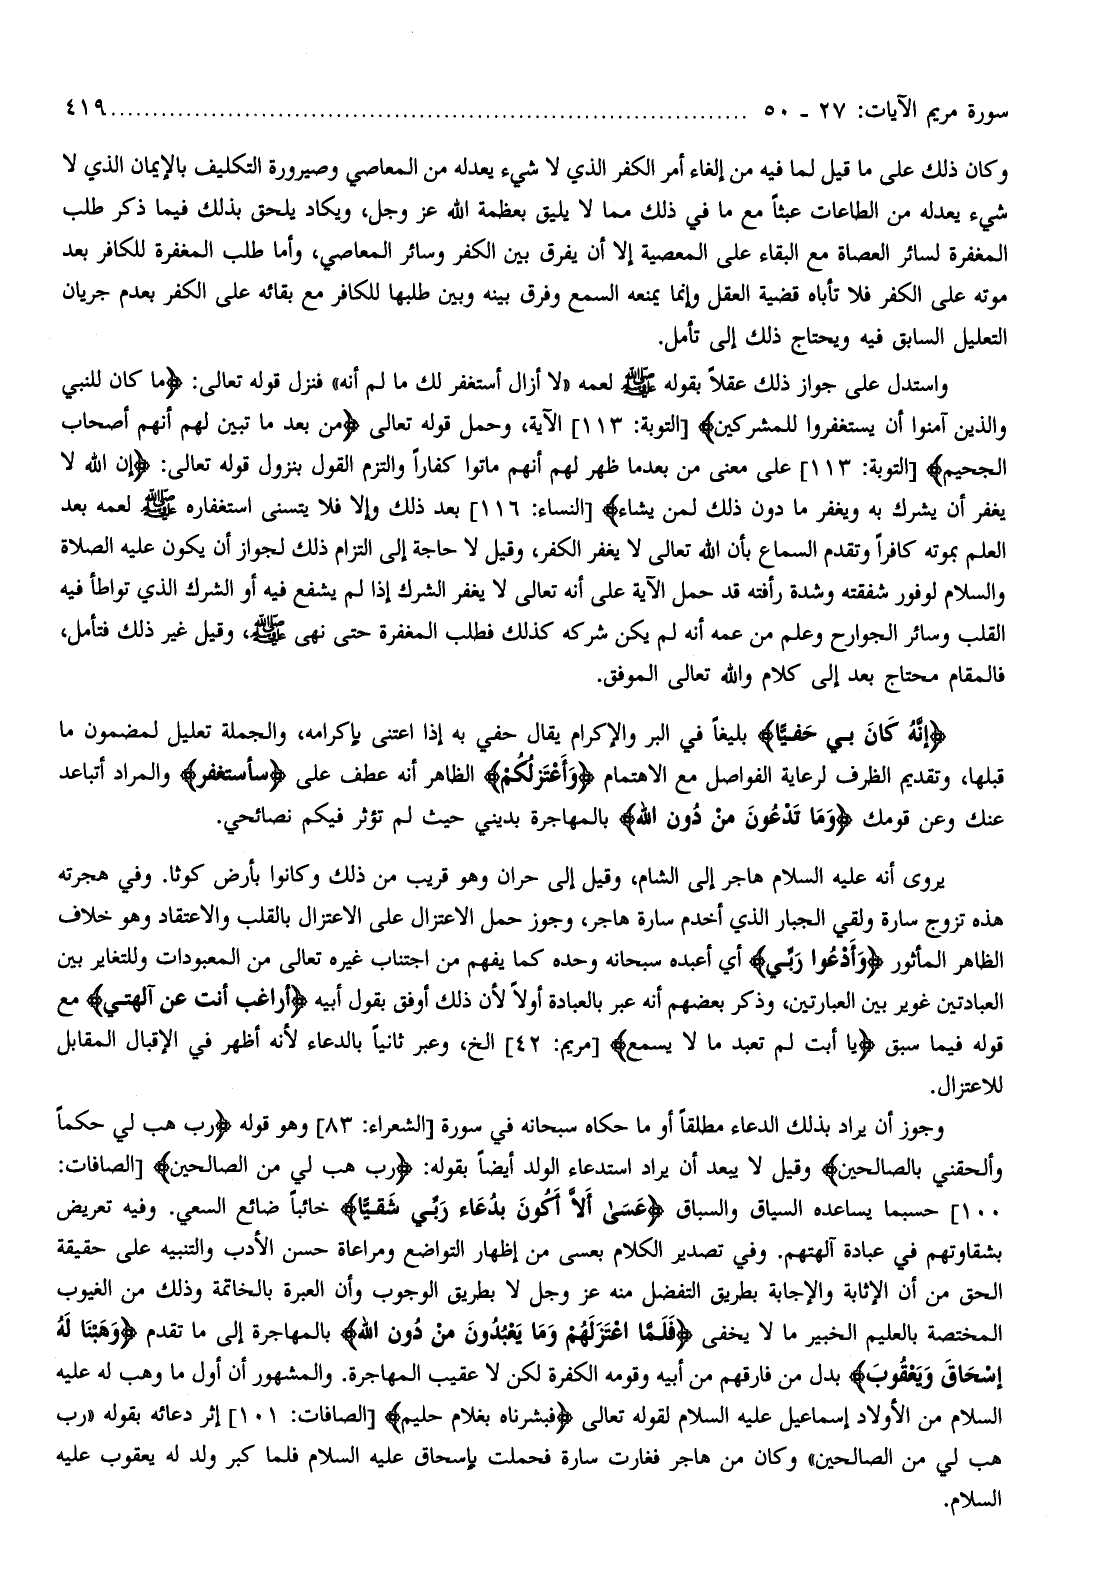 سورة مريم الآيات: ٢٧ - ٥٠ .......................................................................................... ٤١٩
وكان ذلك على ما قيل لما فيه من إلغاء أمر الكفر الذي لا شيء يعدله من المعاصي وصيرورة التكليف بالإيمان الذي لا
شيء يعدله من الطاعات عبثاً مع ما في ذلك مما لا يليق بعظمة الله عز وجل، ويكاد يلحق بذلك فيما ذكر طلب
المغفرة لسائر العصاة مع البقاء على المعصية إلا أن يفرق بين الكفر وسائر المعاصي، وأما طلب المغفرة للكافر بعد
موته على الكفر فلا تأباه قضية العقل وإنما يمنعه السمع وفرق بينه وبين طلبها للكافر مع بقائه على الكفر بعدم جريان
التعليل السابق فيه ويحتاج ذلك إلى تأمل.
واستدل على جواز ذلك عقلاً بقوله ﷺ لعمه «لا أزال أستغفر لك ما لم أنه» فنزل قوله تعالى: ﴿ما كان للنبي
والذين آمنوا أن يستغفروا للمشركين﴾ [التوبة: ١١٣] الآية، وحمل قوله تعالى ﴿من بعد ما تبين لهم أنهم أصحاب
الجحيم﴾ [التوبة: ١١٣] على معنى من بعدما ظهر لهم أنهم ماتوا كفاراً والتزم القول بنزول قوله تعالى: ﴿إن الله لا
يغفر أن يشرك به ويغفر ما دون ذلك لمن يشاء﴾ [النساء: ١١٦] بعد ذلك وإلا فلا يتسنى استغفاره ﷺ لعمه بعد
العلم بموته كافراً وتقدم السماع بأن الله تعالى لا يغفر الكفر، وقيل لا حاجة إلى التزام ذلك لجواز أن يكون عليه الصلاة
والسلام لوفور شفقته وشدة رأفته قد حمل الآية على أنه تعالى لا يغفر الشرك إذا لم يشفع فيه أو الشرك الذي تواطأ فيه
القلب وسائر الجوارح وعلم من عمه أنه لم يكن شركه كذلك فطلب المغفرة حتى نهى ﷺ، وقيل غير ذلك فتأمل،
فالمقام محتاج بعد إلى كلام والله تعالى الموفق.
﴿إِنَّهُ كَانَ بي حَفيًّا﴾ بليغاً في البر والإكرام يقال حفي به إذا اعتنى بإكرامه، والجملة تعليل لمضمون ما
قبلها، وتقديم الظرف لرعاية الفواصل مع الاهتمام ﴿وَأَعْتَزلُكُمْ﴾ الظاهر أنه عطف على ﴿سأستغفر﴾ والمراد أتباعد
عنك وعن قومك ﴿وَمَا تَدْعُونَ منْ دُون الله﴾ بالمهاجرة بديني حيث لم تؤثر فيكم نصائحي.
يروى أنه عليه السلام هاجر إلى الشام، وقيل إلى حران وهو قريب من ذلك وكانوا بأرض كوثا. وفي هجرته
هذه تزوج سارة ولقي الجبار الذي أخدم سارة هاجر، وجوز حمل الاعتزال على الاعتزال بالقلب والاعتقاد وهو خلاف
الظاهر المأثور ﴿وَأَدْعُوا رَبِّي﴾ أي أعبده سبحانه وحده كما يفهم من اجتناب غيره تعالى من المعبودات وللتغاير بين
العبادتين غوير بين العبارتين، وذكر بعضهم أنه عبر بالعبادة أولاً لأن ذلك أوفق بقول أبيه ﴿أراغب أنت عن آلهتي﴾ مع
قوله فيما سبق ﴿يا أبت لم تعبد ما لا يسمع﴾ [مريم: ٤٢] الخ، وعبر ثانياً بالدعاء لأنه أظهر في الإقبال المقابل
للاعتزال.
وجوز أن يراد بذلك الدعاء مطلقاً أو ما حكاه سبحانه في سورة [الشعراء: ٨٣] وهو قوله ﴿رب هب لي حكماً
وألحقني بالصالحين﴾ وقيل لا يبعد أن يراد استدعاء الولد أيضاً بقوله: ﴿رب هب لي من الصالحين﴾ [الصافات:
١٠٠] حسبما يساعده السياق والسباق ﴿عَسَىٰ أَلاَّ أَكُونَ بدُعَاء رَبِّي شَقيًّا﴾ خائباً ضائع السعي. وفيه تعريض
بشقاوتهم في عبادة آلهتهم. وفي تصدير الكلام بعسى من إظهار التواضع ومراعاة حسن الأدب والتنبيه على حقيقة
الحق من أن الإثابة والإجابة بطريق التفضل منه عز وجل لا بطريق الوجوب وأن العبرة بالخاتمة وذلك من الغيوب
المختصة بالعليم الخبير ما لا يخفى ﴿فَلَمَّا اعْتَزَلَهُمْ وَمَا يَعْبُدُونَ منْ دُون الله﴾ بالمهاجرة إلى ما تقدم ﴿وَهَبْنَا لَهُ
إسْحَاقَ وَيَعْقُوبَ﴾ بدل من فارقهم من أبيه وقومه الكفرة لكن لا عقيب المهاجرة. والمشهور أن أول ما وهب له عليه
السلام من الأولاد إسماعيل عليه السلام لقوله تعالى ﴿فبشرناه بغلام حليم﴾ [الصافات: ١٠١] إثر دعائه بقوله «رب
هب لي من الصالحين» وكان من هاجر فغارت سارة فحملت بإسحاق عليه السلام فلما كبر ولد له يعقوب عليه
السلام.